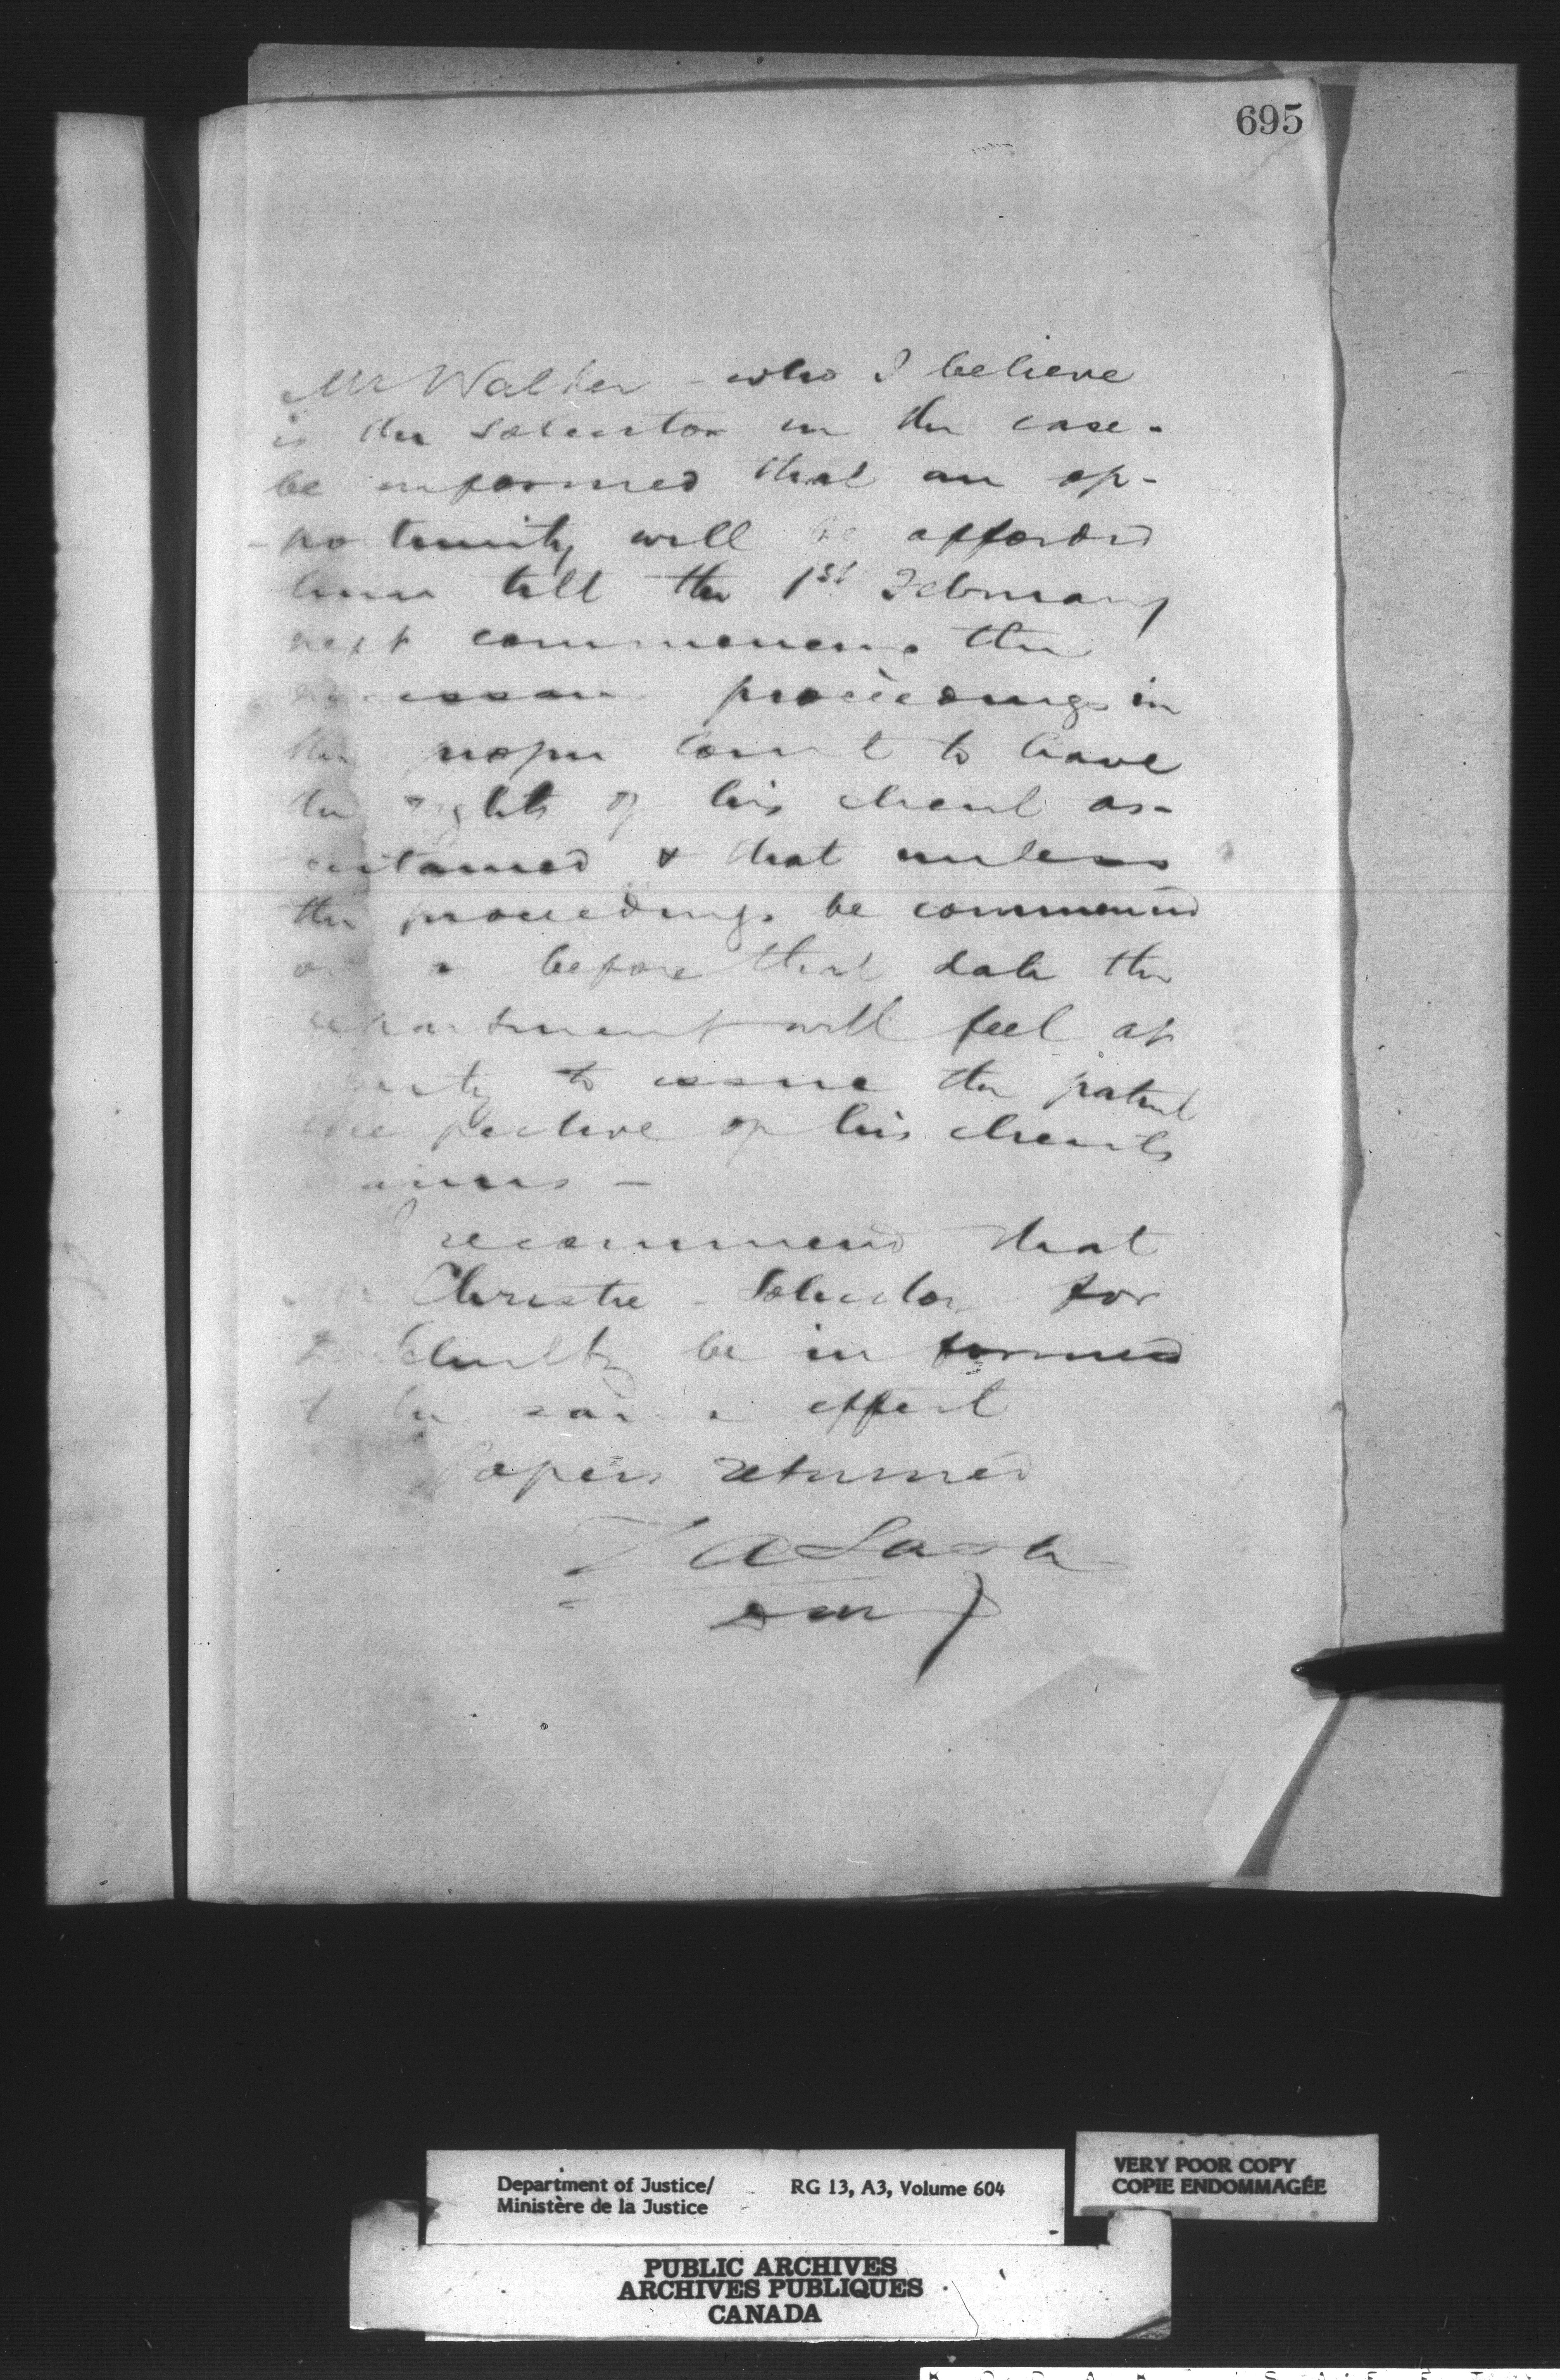 695
Mr Walker - who I believe
is the Solicitor in the case -
be informed that an op-
-portunity will be afforded
him till the 1st February
next commencing the
necessary proceedings in
the proper Court to have
the rights of his client as-
certained & that unless
the proceedings be commenced
on or before that date the
department will feel at
liberty to issue the patent
irrespective of his clients
claims -
I recommend that
Mr Christie - Solicitor for
be informed
to the same effect
Papers returned
Z A Lash
D M J
Department of Justice/
Ministère de la Justice
RG 13, A3, Volume 604
VERY POOR COPY
COPIE ENDOMMAGÉE
PUBLIC ARCHIVES
ARCHIVES PUBLIQUES
CANADA